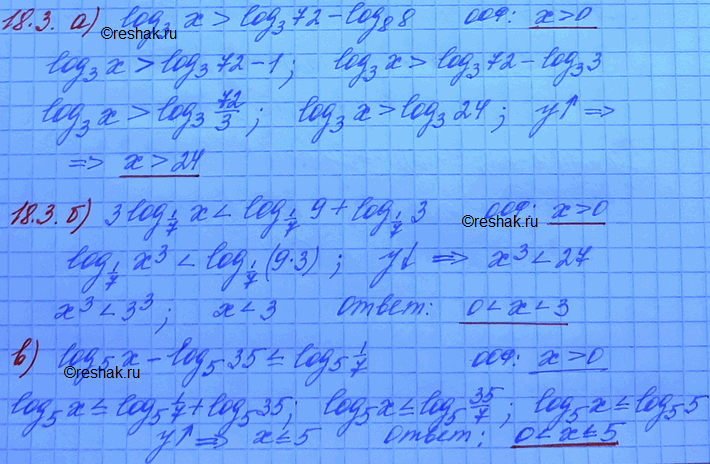 18.3. а) log₃ x > log₃ 72 - log₈ 8 ООФ: x>0
©reshak.ru
log₃ x > log₃ 72 - 1; log₃ x > log₃ 72 - log₃ 3
log₃ x > log₃ 72/3; log₃ x > log₃ 24; y↑ =>
=> x > 24
18.3. б) 3 log_{1/7} x < log_{1/7} 9 + log_{1/7} 3 ООФ: x>0
©reshak.ru
log_{1/7} x³ < log_{1/7} (9·3); y↓ => x³ < 27
x³ < 3³; x < 3 ответ: 0 < x < 3
в) log₅ x - log₅ 35 ≤ log₅ 1/7 ООФ: x>0
©reshak.ru
log₅ x ≤ log₅ 1/7 + log₅ 35; log₅ x ≤ log₅ 35/7; log₅ x ≤ log₅ 5
y↑ => x ≤ 5 ответ: 0 < x ≤ 5